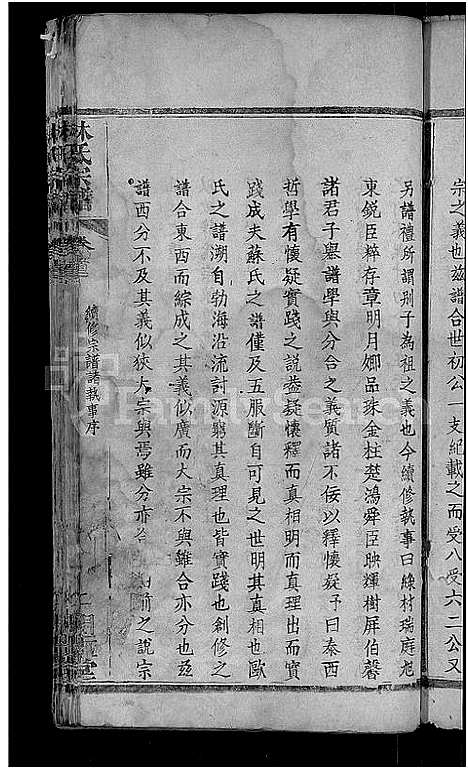 宗之義也族譜合世初公一支紀載之而受八受六二公又
另譜禮所謂別子為祖之義也今續修執事曰練材瑞庭尨
東銳臣粹存章明月娜品珠金柱楚鴻舜臣映輝樹屏伯馨
諸君子舉譜學與分合之義質諸不佞以釋懷疑予曰泰西
哲學有懷疑實踐之說葢疑懷釋而真相明而真理出而實
踐成夫蘇氏之譜僅及五服斷自可見之世明其真相也歐
氏之譜溯自勃海沿流討源窮其真理也皆實踐也創修之
譜合東西而綜成之其義似廣而大宗不與雖合亦分也茲
譜西分不及其義似狹大宗與焉雖分亦合 前之說宗
林氏宗譜
卷
續修宗譜諸執事序
堂
FamilySearch